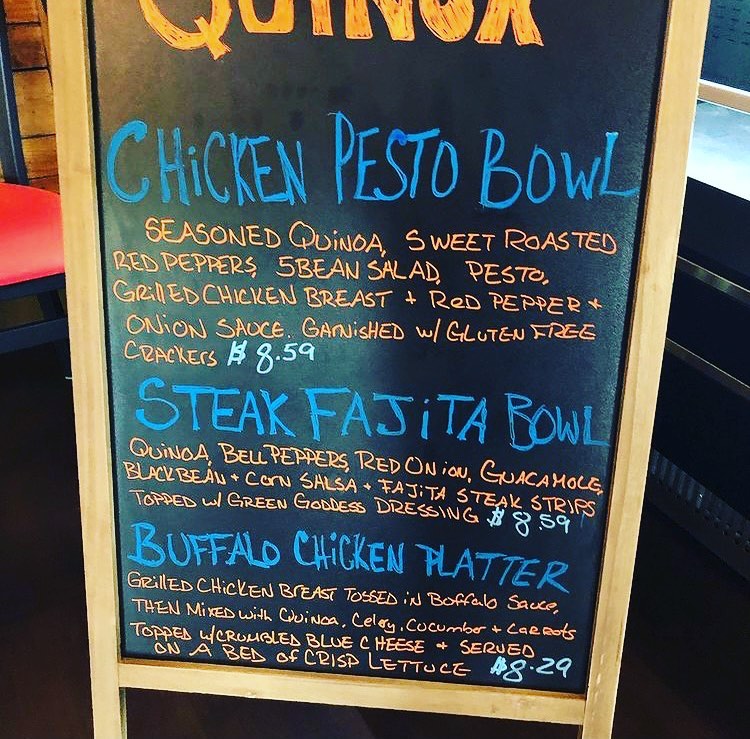 QUINOA
CHiCKEN PESTO BOWL
SEASONED QUINOA, SWEET ROASTED
RED PEPPERS, 5BEAN SALAD, PESTO,
GRillED CHICKEN BREAST + RED PEPPER +
ONION SAUCE. GARNISHED W/ GLUTEN FREE
CRACKERS $8.59
STEAK FAJiTA BOWL
QUINOA, BELL PEPPERS, RED ONION, GUACAMOLE,
BLACK BEAN + CORN SALSA + FAJITA STEAK STRIPS
TOPPED W/ GREEN GODDESS DRESSING $8.59
BUFFALO CHiCKEN PLATTER
GRILLED CHICKEN BREAST TOSSED iN Boffalo Sauce,
THEN MIXED with QUINOA, Celery, CUCUMBER + CARROTS
TOPPED W/CRUMBLED BLUE CHEESE + SERVED
ON A BED of CRISP LETTUCE $8.29